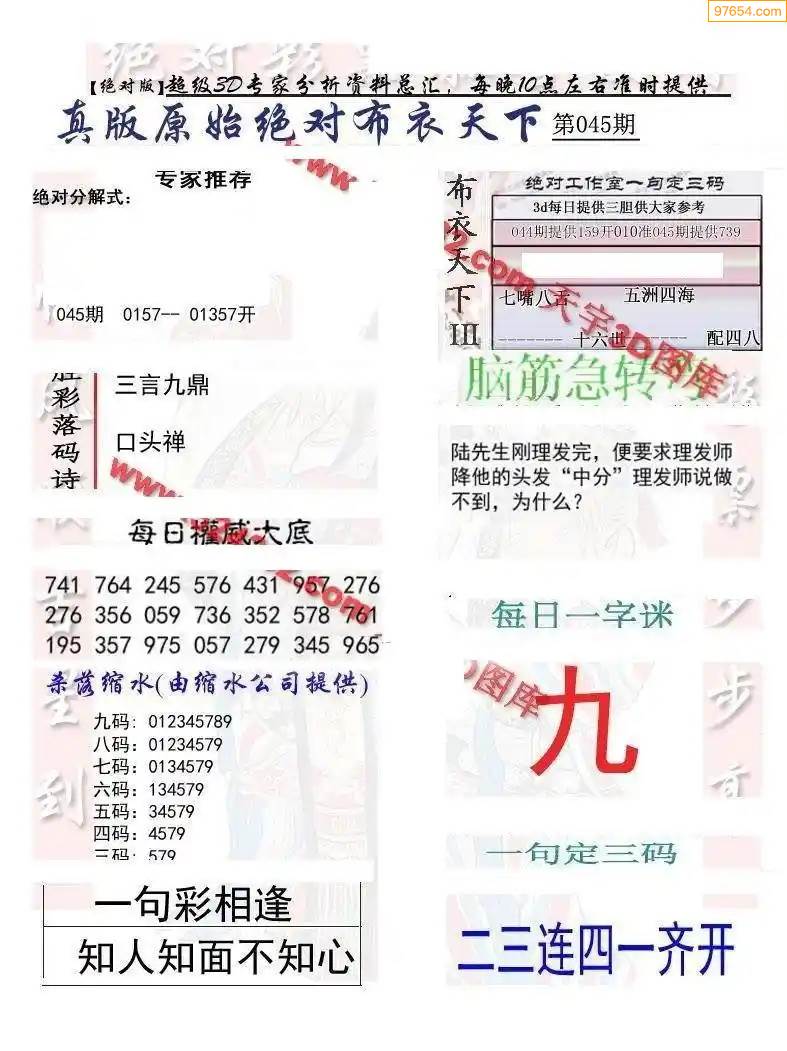 97654.com
【绝对版】超级3D专家分析资料总汇，每晚10点左右准时提供
真版原始绝对布衣天下 第045期
专家推荐
绝对分解式：
045期 0157-- 01357开
彩落码诗
三言九鼎
口头禅
每日權威大底
741 764 245 576 431 957 276
276 356 059 736 352 578 761
195 357 975 057 279 345 965
杀落缩水(由缩水公司提供)
九码: 012345789
八码: 01234579
七码: 0134579
六码: 134579
五码: 34579
四码: 4579
三码: 579
一句彩相逢
知人知面不知心
布衣天下III
绝对工作室一句定三码
3d每日提供三胆供大家参考
044期提供159开010准045期提供739
七嘴八舌 五洲四海
------- 十六世 ------ 配四八
天宇3D图库
脑筋急转
陆先生刚理发完，便要求理发师
降他的头发“中分”理发师说做
不到，为什么？
每日一字迷
3D图库
九
一句定三码
二三连四一齐开
www
www
2.com
2.com
步